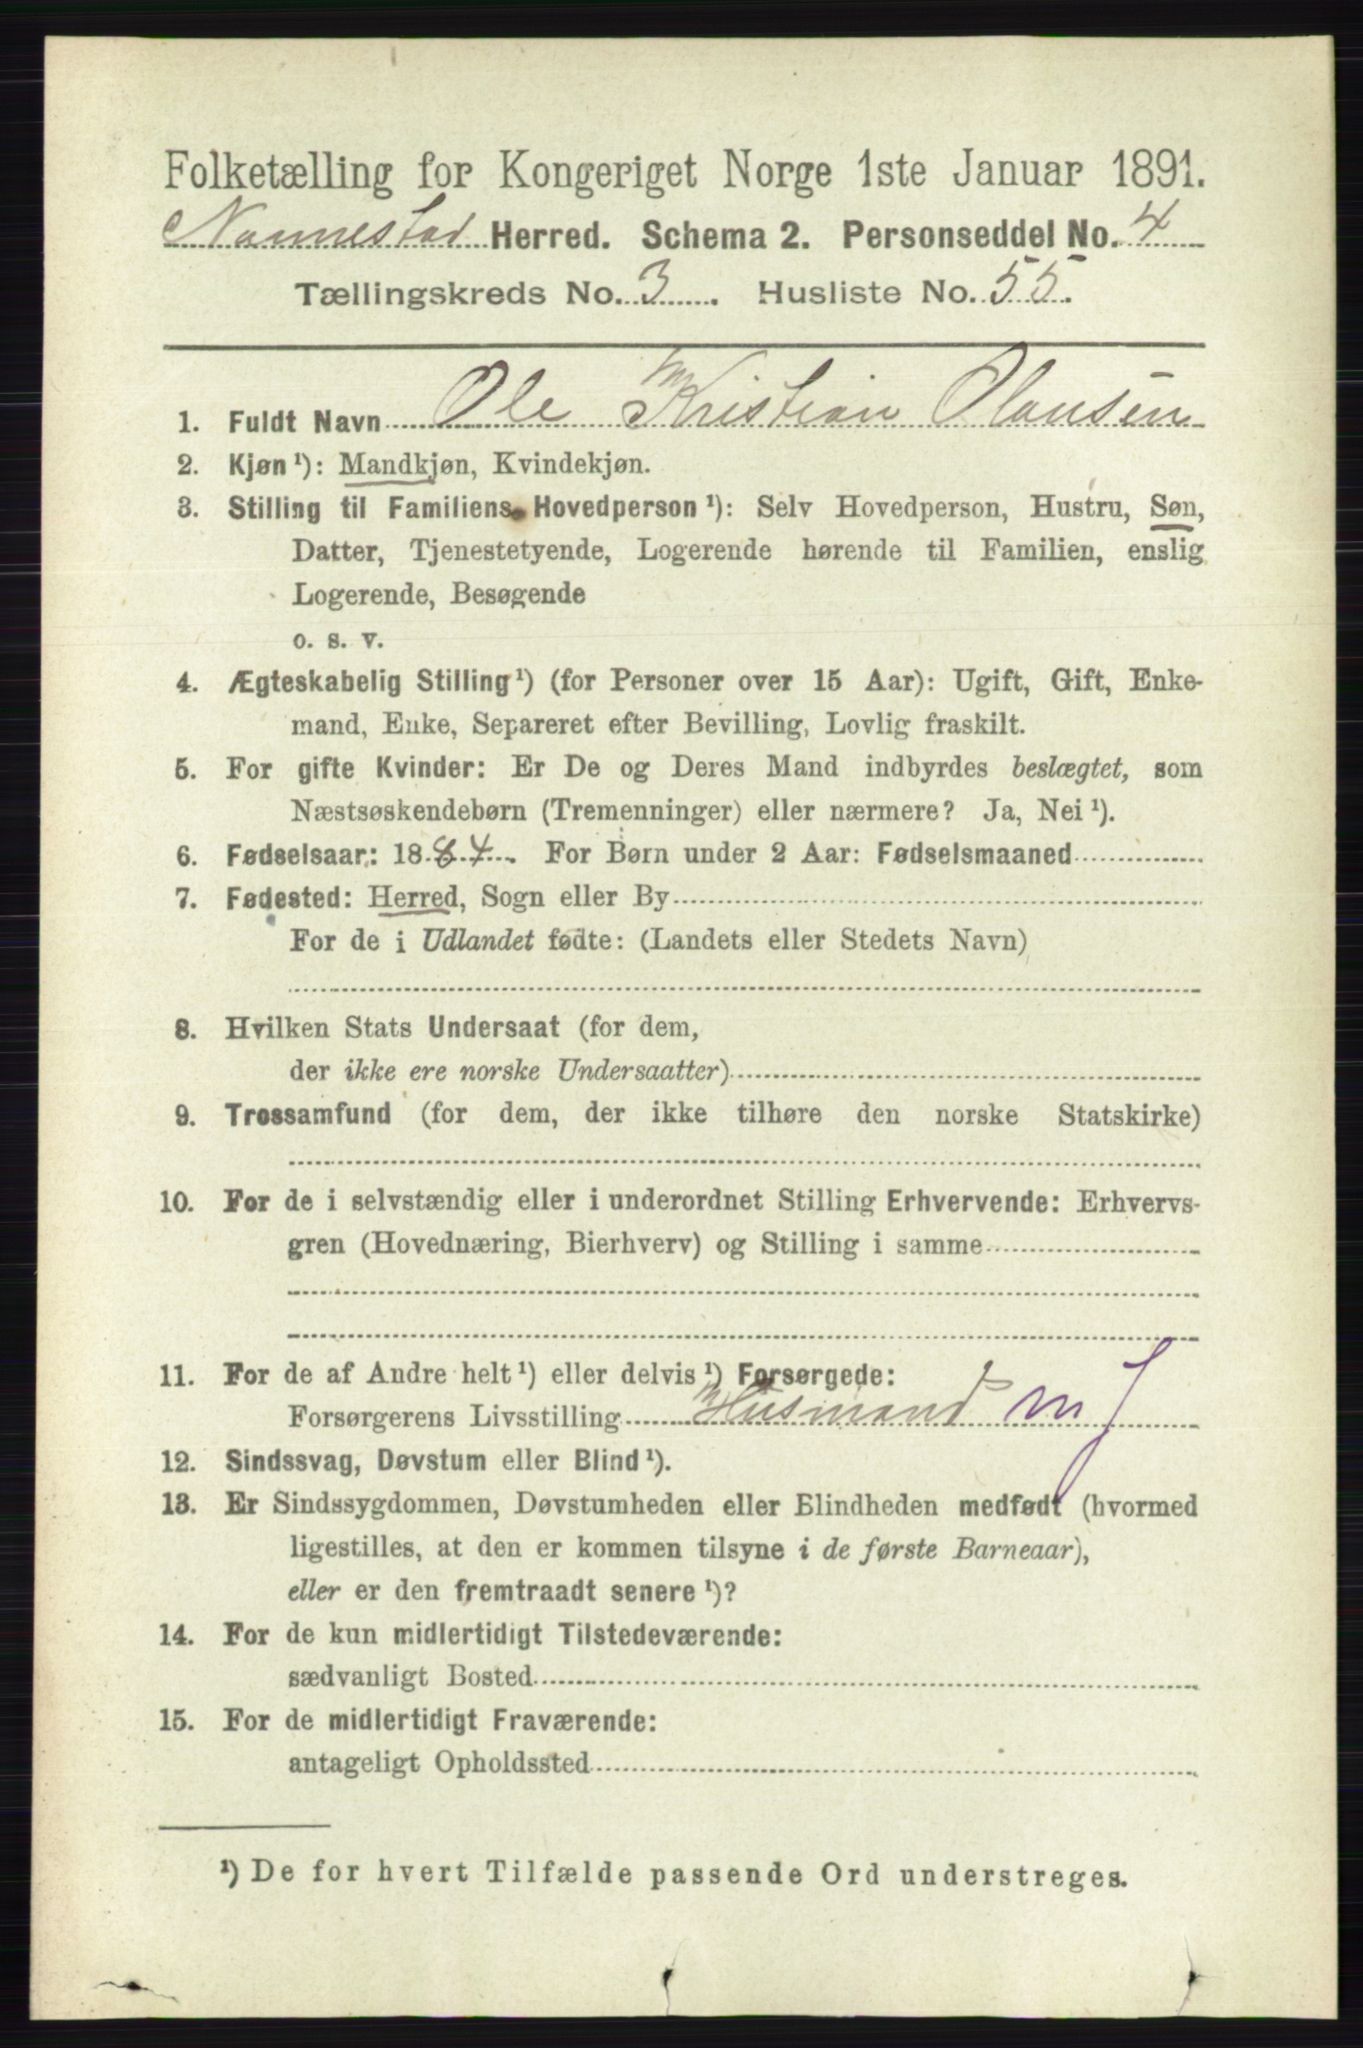 Folketælling for Kongeriget Norge 1ste Januar 1891.
Nannestad Herred. Schema 2. Personseddel No. 4
Tællingskreds No. 3. Husliste No. 55.
1. Fuldt Navn Ole Kristian Olausen
2. Kjøn ¹): Mandkjøn, Kvindekjøn.
3. Stilling til Familiens Hovedperson ¹): Selv Hovedperson, Hustru, Søn,
Datter, Tjenestetyende, Logerende hørende til Familien, enslig
Logerende, Besøgende
o. s. v.
4. Ægteskabelig Stilling ¹) (for Personer over 15 Aar): Ugift, Gift, Enke-
mand, Enke, Separeret efter Bevilling, Lovlig fraskilt.
5. For gifte Kvinder: Er De og Deres Mand indbyrdes beslægtet, som
Næstsøskendebørn (Tremenninger) eller nærmere? Ja, Nei ¹).
6. Fødselsaar: 1884. For Børn under 2 Aar: Fødselsmaaned
7. Fødested: Herred, Sogn eller By
For de i Udlandet fødte: (Landets eller Stedets Navn)
8. Hvilken Stats Undersaat (for dem,
der ikke ere norske Undersaatter)
9. Trossamfund (for dem, der ikke tilhøre den norske Statskirke)
10. For de i selvstændig eller i underordnet Stilling Erhvervende: Erhvervs-
gren (Hovednæring, Bierhverv) og Stilling i samme
11. For de af Andre helt ¹) eller delvis ¹) Forsørgede:
Forsørgerens Livsstilling Husmand m J
12. Sindssvag, Døvstum eller Blind ¹).
13. Er Sindssygdommen, Døvstumheden eller Blindheden medfødt (hvormed
ligestilles, at den er kommen tilsyne i de første Barneaar),
eller er den fremtraadt senere ¹)?
14. For de kun midlertidigt Tilstedeværende:
sædvanligt Bosted
15. For de midlertidigt Fraværende:
antageligt Opholdssted
¹) De for hvert Tilfælde passende Ord understreges.